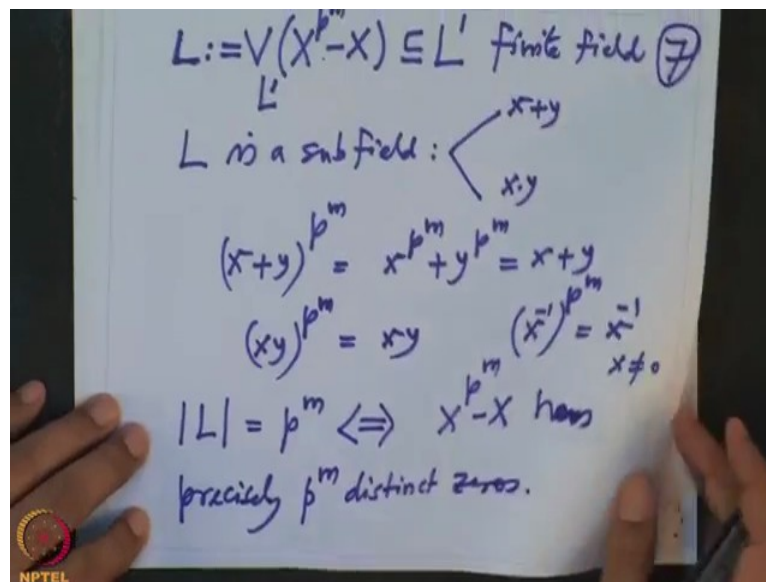 L := V_{L'}(X^{p^m} - X) ⊆ L' finite field ⑦
L is a subfield : x+y
x·y
(x+y)^{p^m} = x^{p^m} + y^{p^m} = x+y
(xy)^{p^m} = xy (x^{-1})^{p^m} = x^{-1}
x ≠ 0
|L| = p^m ⇔ X^{p^m} - X has
precisely p^m distinct zeros.
NPTEL